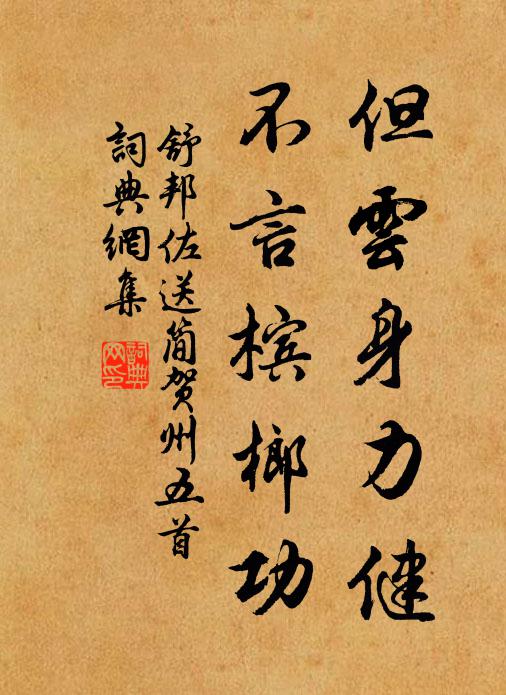 但雲身力健
不言槟榔功
舒邦佐送简贺州五首
詞典網集
詞典
网印